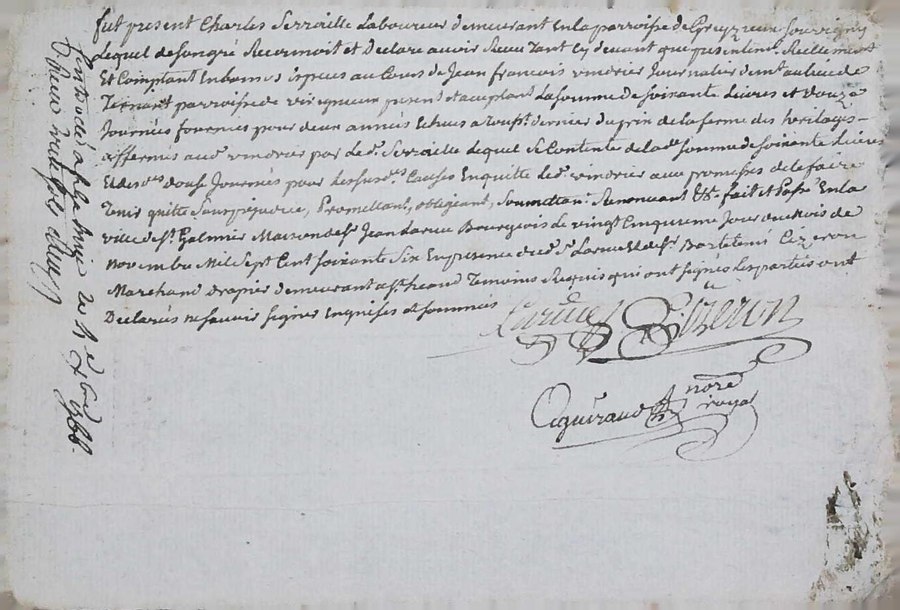 fut present Charles Serraille Laboureur demeurant En la parroisse de
Lequel de son gré Reconnoit et Declare avoir Receu Tant Cy devant que presentemt Reellement
Et Comptant En bonnes Especes au Cours de Jean francois vindrier Journalier demt au lieu de
parroisse de present et acceptant La somme de soixante Livres et douze
Journées fournies pour deux années Echues a dernier du prix de la ferme des heritages
affermés aud. vindrier par Led. Serraille Lequel se Contente de lad. somme de soixante Livres
Et desd.es douse Journées pour desusd.es Causes En quitte led. vindrier avec promesses de le faire
Tenir quitte sans prejudice, Promettant, obligeant, soumettant, Renonceant &a. fait et Passé En la
ville de St. Galmier Maison de Sr. Jean Larue Bourgeois Le vingt Cinquieme Jour du Mois de
Novembre Mil Sept Cent soixante Six En presence dud. Sr. Larue Et de Sr. Bartelemi Cizeron
Marchand drapier demeurant aud. St. Temoins Requis qui ont signés Les parties ont
Declarés ne savoir signer Enquises et sommées
Larue Cizeron
nore
royal
1766